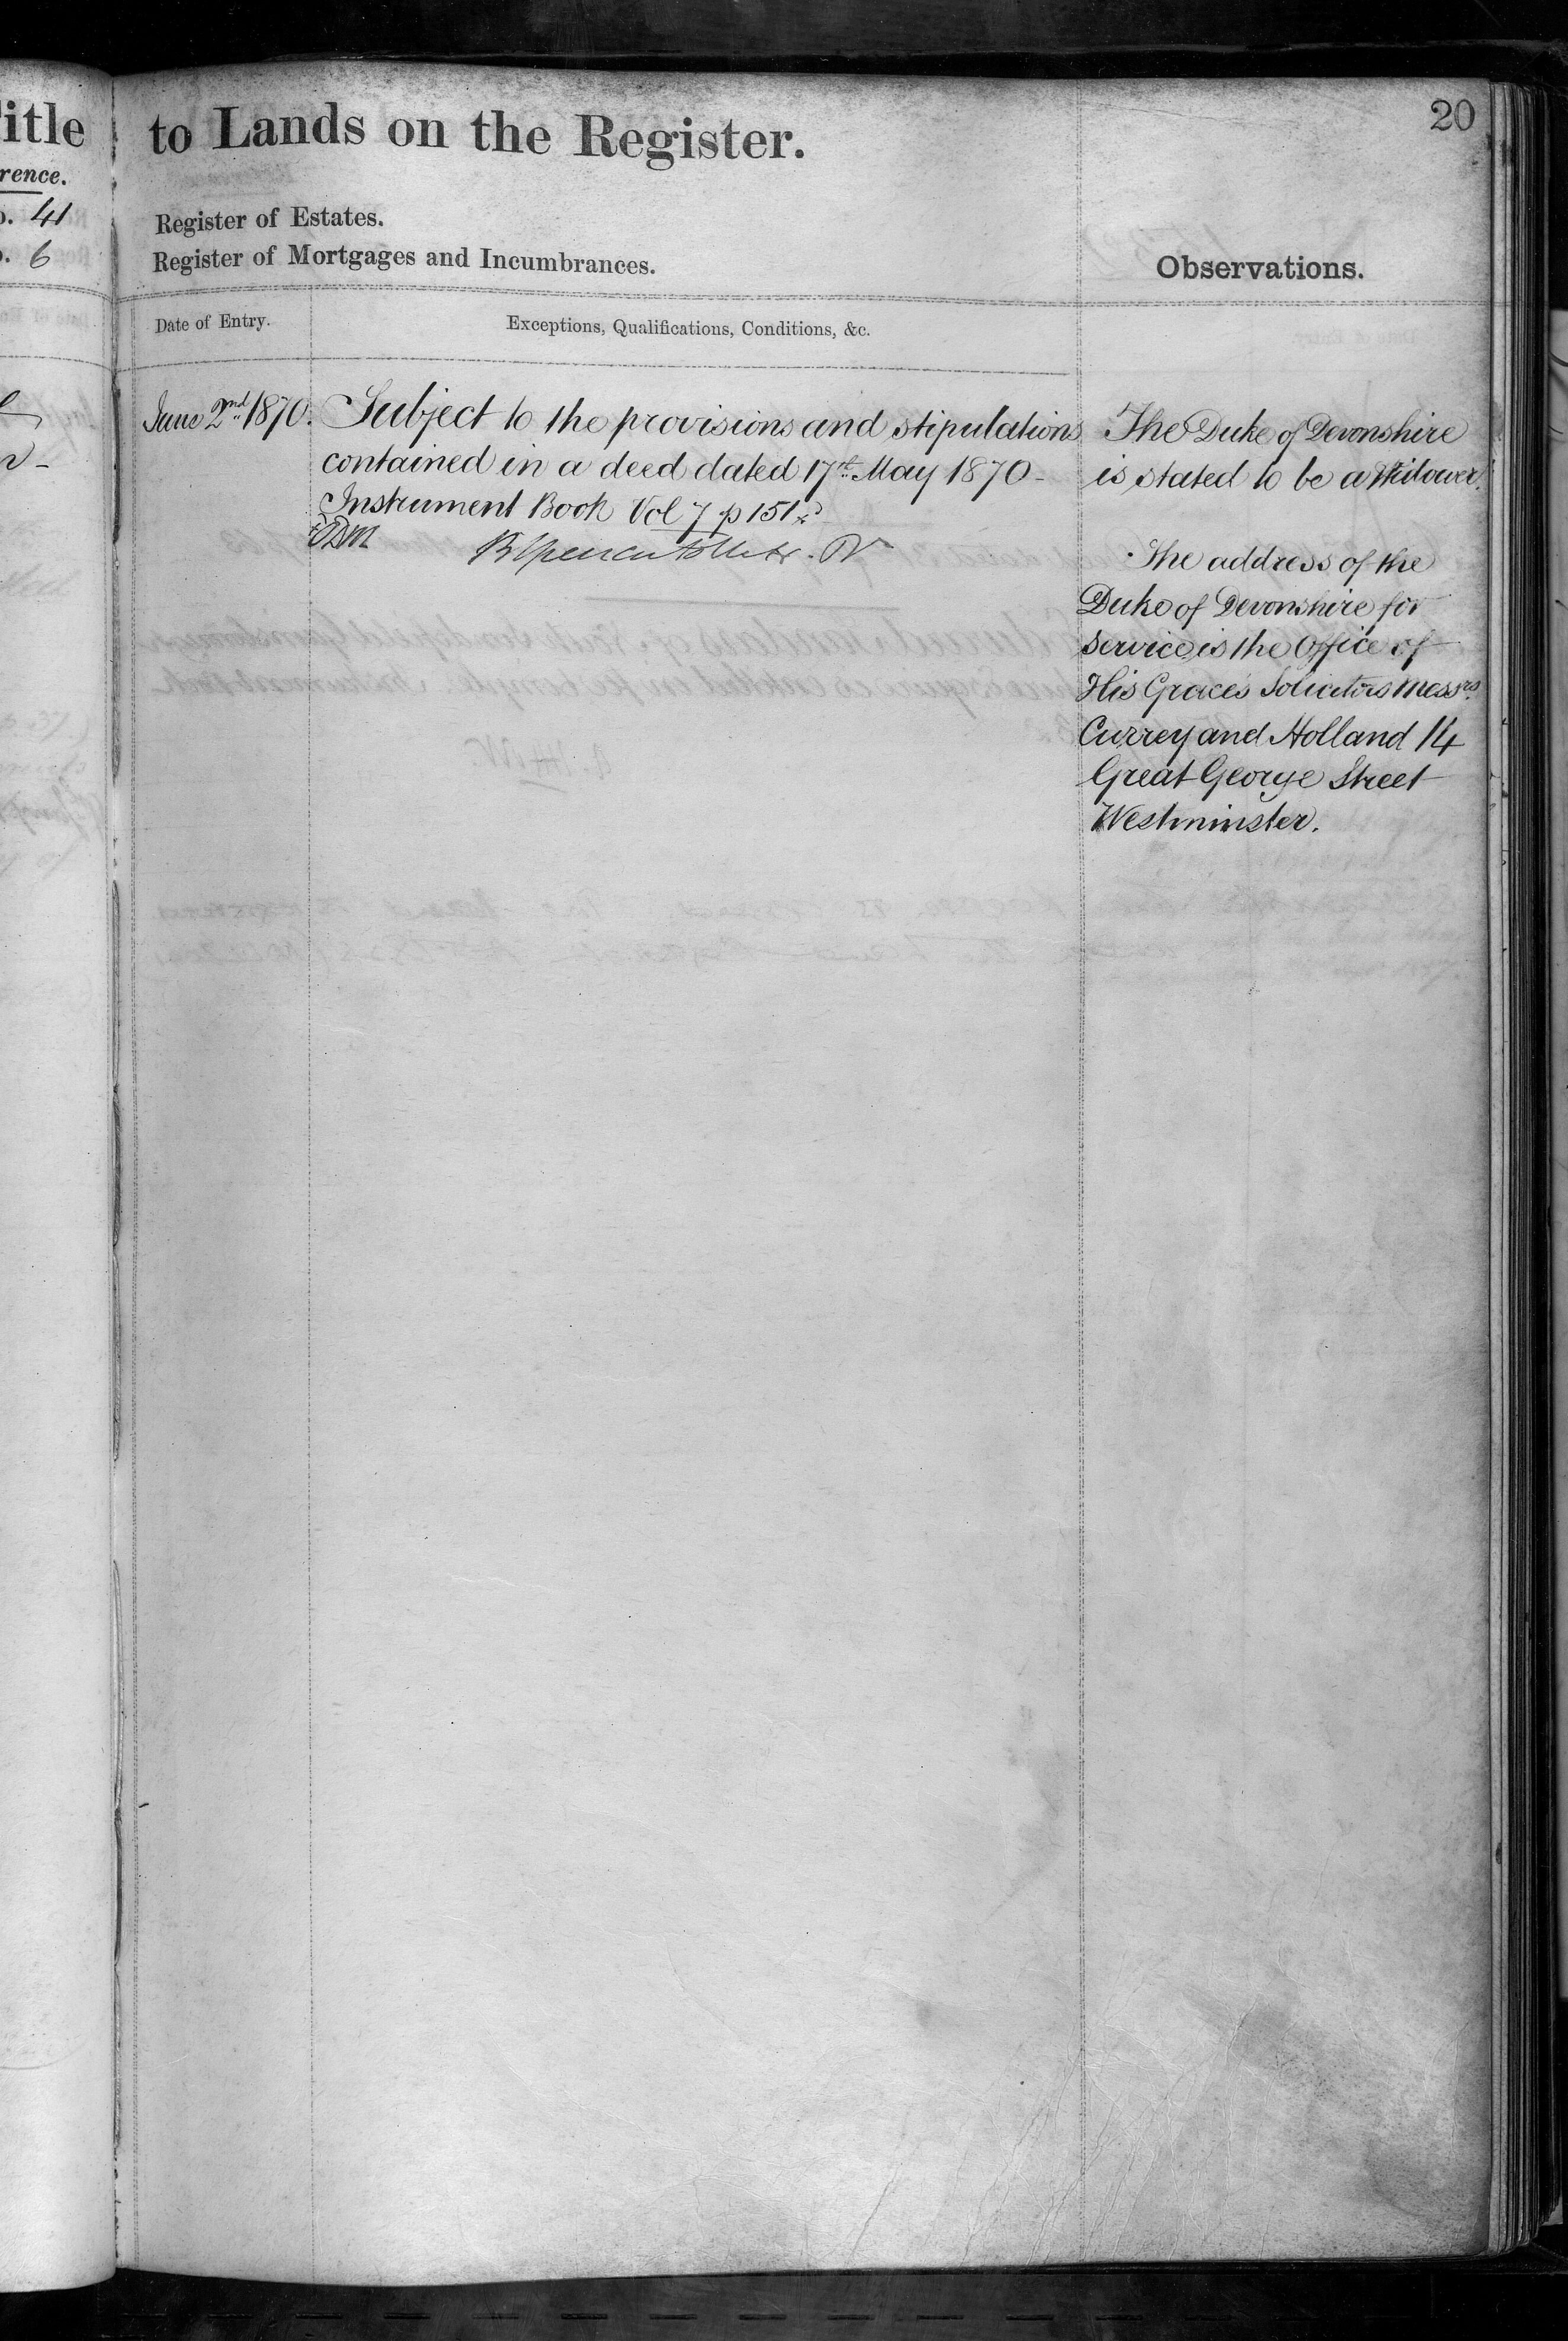 itle
rence.
o. 41
o. 6
to Lands on the Register.
20
Register of Estates.
Register of Mortgages and Incumbrances.
Observations.
Date of Entry.
Exceptions, Qualifications, Conditions, &c.
June 2nd 1870.
Subject to the provisions and stipulations
contained in a deed dated 17th May 1870 -
Instrument Book Vol 7 p 151
The Duke of Devonshire
is stated to be a Widower.
The address of the
Duke of Devonshire for
service is the Office of
His Grace's Solicitors Messrs.
Currey and Holland 14
Great George Street
Westminster.